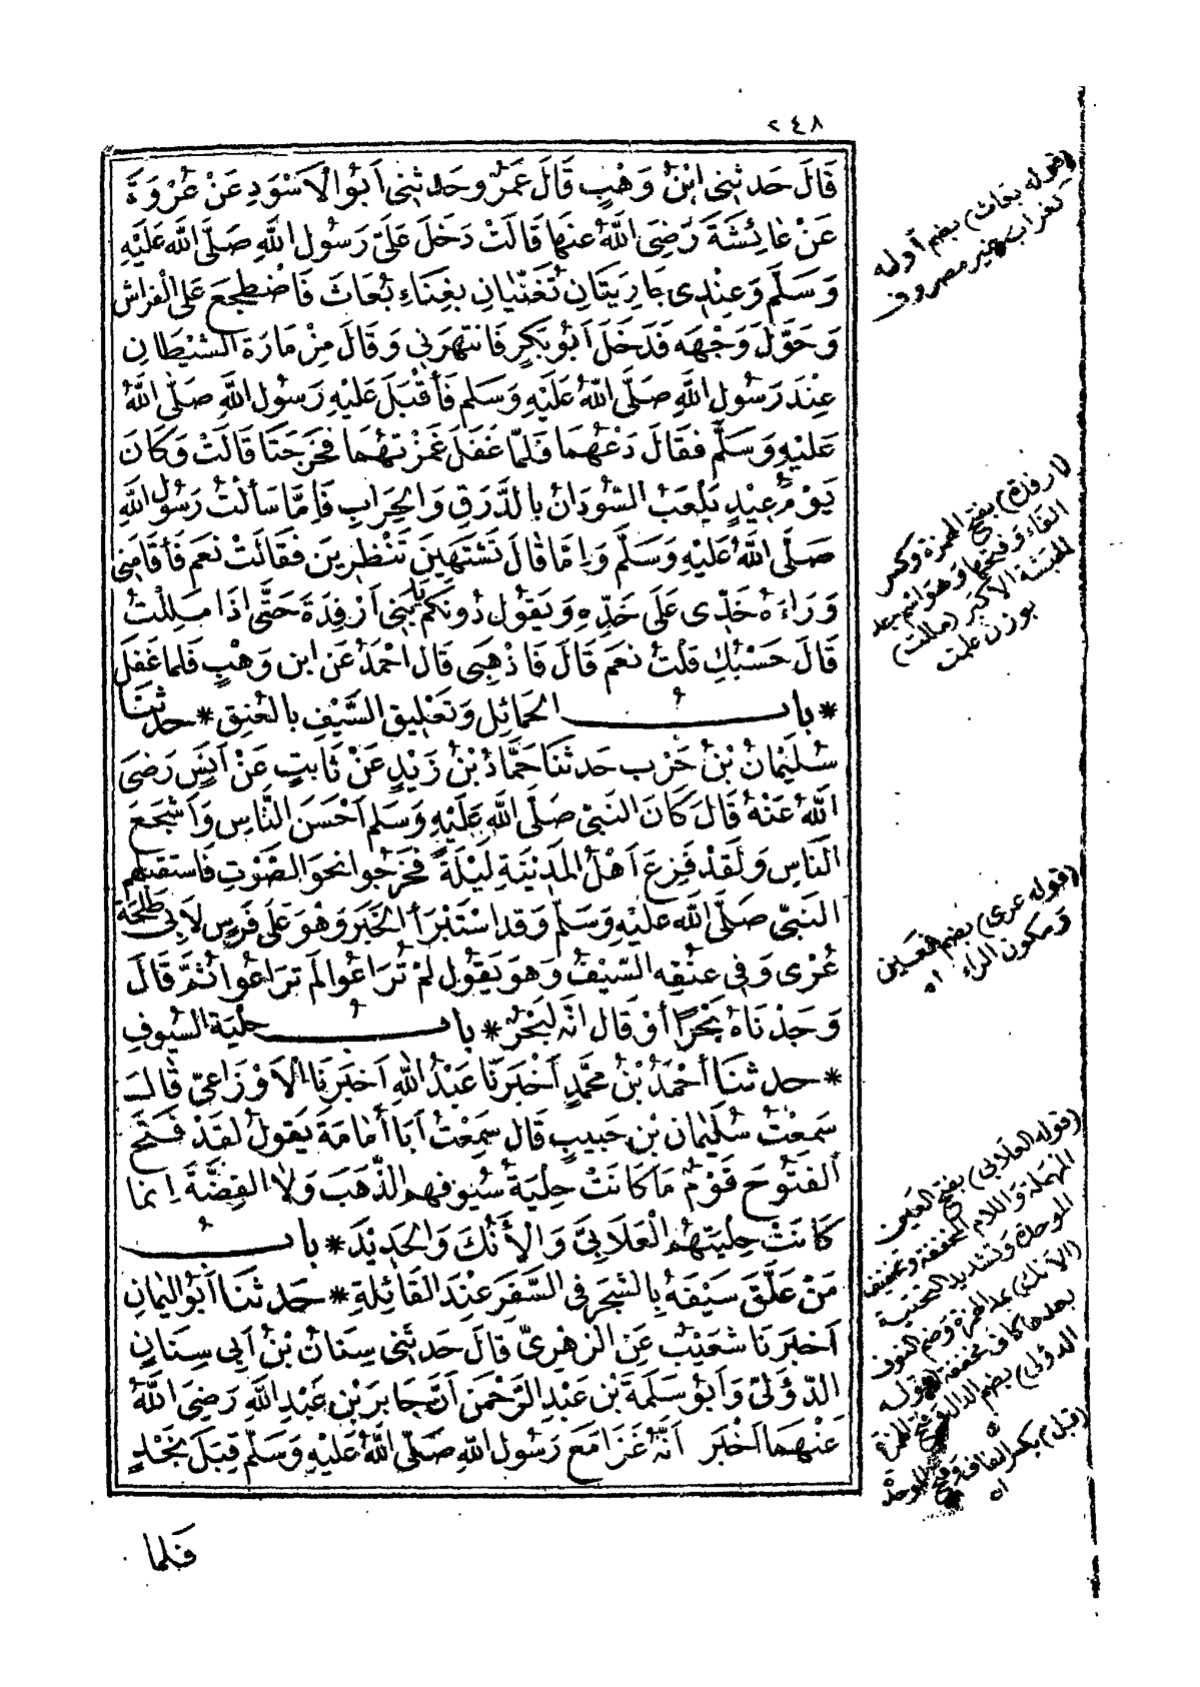 ٢٤٨
قَالَ حَدثَنِى ابْنُ وَهْبٍ قَالَ عَمْرٌ وحَدثَنِى أَبُو الْاَسْوَدِ عَنْ عُرْوَةَ
عَنْ عَائِشَةَ رَضِىَ اللهُ عنهَا قَالَتْ دَخَلَ عَلَىَّ رَسُولُ اللهِ صَلَّى الله عَلَيْهِ
وَسَلَّم وَعِنْدِى جَارِيَتَانِ تُغَنِّيَانِ بِغِنَاءِ بُعَاثَ فَاضْطَجَعَ عَلَى الْفِرَاشِ
وَحَوَّلَ وَجْهَه فَدَخَلَ أَبُو بَكْرٍ فَانْتَهَرَنِى وَقَالَ مِزْمَارَةُ الشَّيْطَانِ
عِنْدَ رَسُولِ اللهِ صَلَّى اللهُ عَلَيْهِ وَسَلم فَأَقْبَلَ عَلَيْهِ رَسُولُ اللهِ صَلَّى اللهُ
عَلَيْهِ وَسَلَّم فقَالَ دَعْهُمَا فَلمَّا غَفَلَ غَمَزْتهُمَا فَخَرجَتَا قَالَتْ وَكَانَ
يَوْمُ عِيْدٍ يَلْعَبُ السُّودَانُ بِالدَّرَقِ وَالحِرَابِ فَإِمَّا سَأَلْتُ رَسُولَ اللهِ
صَلَّى اللهُ عَلَيْهِ وَسَلَّم وَإِمَّا قَالَ تَشْتَهِينَ تَنْظُرِينَ فَقَالَتْ نَعَم فَأَقَامَنِى
وَرَاءَهُ خَدِّى عَلَى خَدِّهِ وَيَقُولُ دُونَكُمْ يَا بَنِى أَرْفِدَةَ حَتَّى اذَا مَلِلْتُ
قَالَ حَسْبُكِ قلْتُ نعَم قَالَ فَاذْهَبِى قَالَ احْمَدُ عَن ابن وَهْبٍ فَلما غَفَلَ
* بابُ الحَمَائِلِ وَتَعْلِيقِ السَّيْفِ بِالعُنِقِ * حَدثَنَا
سُلَيْمَانُ بْنُ حَرْبٍ حَدثَنَا حَمَّادُ بْنُ زَيْدٍ عَنْ ثَابِتٍ عَنْ أَنَسٍ رَضِىَ
اللهُ عَنْهُ قَالَ كَانَ النَبِىُّ صَلَّى الله عَلَيْهِ وَسَلم أَحْسَنَ النَّاسِ وَأَشْجَعَ
النَاسِ وَلَقَدْ فَزِعَ أَهْلُ المَدِيْنَةِ لَيْلَةً فَخَرَجُوا نحوَ الصَّوْتِ فَاستقبلهم
النَبِىّ صَلَّى الله عليْهِ وَسَلَّم وَقد اسْتَبْرَأَ الخَبَرَ وَهُوَ عَلَى فَرَسٍ لأَبِى طَلحَةَ
عُرْىٍ وَفِى عنُقِهِ السَّيْفُ وَهوَ يَقُولُ لمْ تُرَاعُوا لمَ تُرَاعُوا ثُمَّ قَالَ
وَجَدْنَاهُ بَحْرًا أَوْ قَالَ انَّه لَبَحْرٌ * بابُ حِلْيَةِ السُّيُوفِ
* حدثنَا أَحْمَدُ بْنُ محمَّدٍ أَخْبَرَنَا عَبْدُ اللهِ أَخبَرَنَا الأَوْزَاعِىُّ قَالَ
سَمِعْتُ سُلَيْمَان بن حَبيبٍ قَال سَمِعْتُ أَبَا أُمَامَةَ يَقُولُ لَقَدْ فَتَحَ
الفتُوحَ قَوْمٌ مَا كَانَتْ حِلْيَةُ سُيُوفِهم الذَّهَبَ وَلاَ الفِضَّةَ إِنمَا
كَانَتْ حِليَتهُم الْعَلَابِىَّ وَالْأَنُكَ وَالحَدِيْدَ * بابُ
مَنْ عَلَّقَ سَيْفَهُ بِالشَجَرِ فى السَّفَرِ عِنْدَ القَائِلَةِ * حَدثنَا أَبُو اليَمَانِ
أَخبَرَنَا شعَيْبٌ عَنِ الزُهْرِىِّ قَالَ حَدثَنِى سِنَانُ بْنُ أَبِى سِنَانٍ
الدُّؤَلِىُّ وَأَبُو سَلَمَةَ بْنُ عَبْدِ الرَحْمَنِ أَنَّ جَابِرَ بْنَ عَبْدِ اللهِ رَضِىَ اللهُ
عَنْهمَا أَخْبَرَ أَنَّهُ غَزَا مَعَ رَسُولِ اللهِ صَلَّى اللهُ عَلَيْهِ وَسَلَّم قِبَلَ نَجْدٍ
فَلما
(قوله بعاث) بضم أوله
كغراب غير مصروف
(أرفدة) بفتح الهمزة وكسر
الفاء وفتحها وهو اسم جد
الحبشة الأكبر (مللت)
بوزن علمت
(قوله عرى) بضم العين
وسكون الراء اه
(قوله العلابى) بفتح العين
المهملة واللام المخففة وتخفيف
الموحدة وتشديد التحتية
(الآنك) بمد الهمزة وضم النون
بعدها كاف مخففة قوله
الدؤلى) بضم الدال وفتح الهمزة
(قبل) بكسر القاف وفتح الموحدة
اه